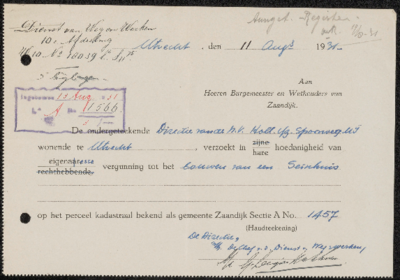 Dienst van Weg en Werken
10e Afdeeling
No 10039
5 Bijlagen
Utrecht, den 11 Aug. 1931.
Aan
Heeren Burgemeester en Wethouders van
Zaandijk.
Ingekomen 12 Aug. 1931
No 1566
De ondergeteekende Directie van de N.V. Holl. Spoorweg Mij
wonende te Utrecht, verzoekt in zijne hare hoedanigheid van
eigenaresse rechthebbende, vergunning tot het bouwen van een Seinhuis
op het perceel kadastraal bekend als gemeente Zaandijk Sectie A No. 1457
(Handteekening)
De Directie,